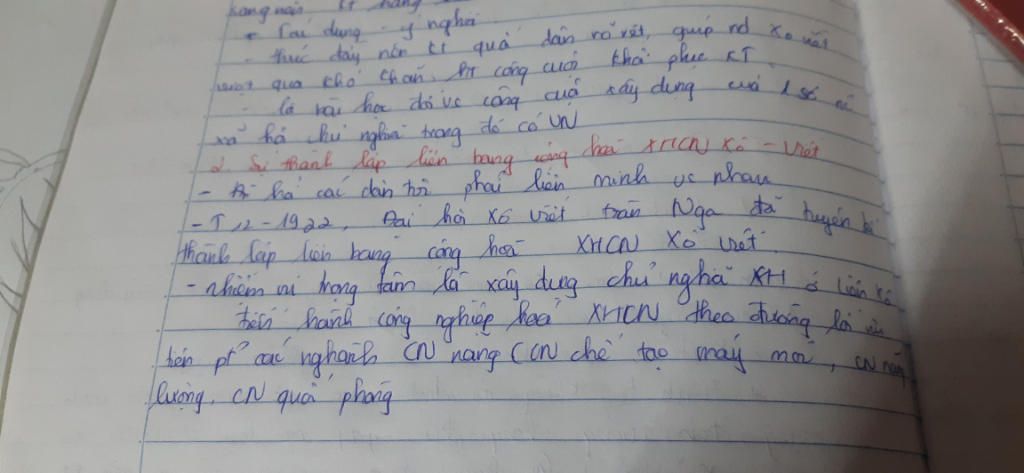 - Tác dụng - ý nghĩa
- thúc đẩy nền KT quốc dân rõ rệt, giúp nd Xô viết
vượt qua khó khăn, ht công cuộc khôi phục KT.
- là bài học đối vs công cuộc xây dựng của 1 số nc
xã hội chủ nghĩa trong đó có VN
2. Sự thành lập liên bang cộng hoà XHCN Xô - Viết
các dân tộc phải liên minh vs nhau
- T12-1922, Đại hội Xô viết toàn Nga đã tuyên bố
thành lập liên bang cộng hoà XHCN Xô viết.
- nhiệm vụ trọng tâm là xây dựng chủ nghĩa XH ở Liên Xô
tiến hành công nghiệp hoá XHCN theo đường lối ưu
tiên pt các nghành CN nặng (CN chế tạo máy móc, CN năng
lượng, CN quốc phòng